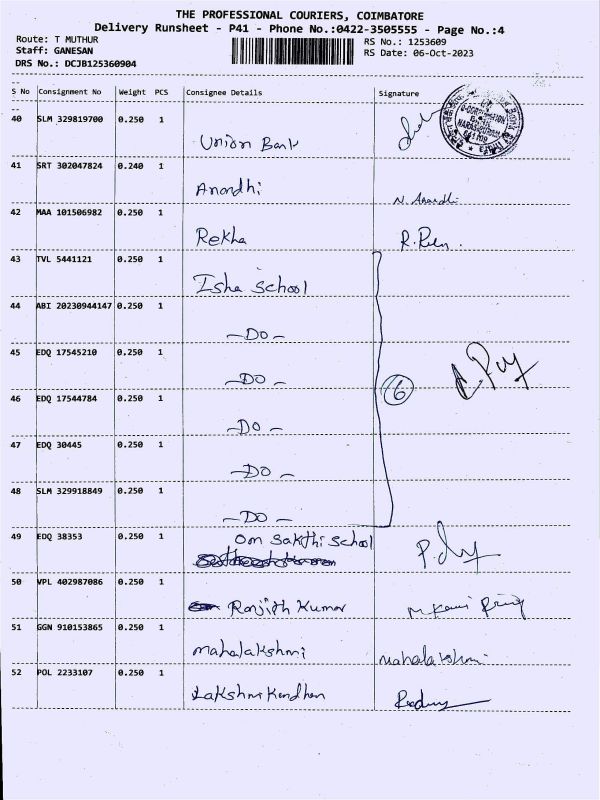 THE PROFESSIONAL COURIERS, COIMBATORE
Delivery Runsheet - P41 - Phone No.:0422-3505555 - Page No.:4
Route: T MUTHUR RS No.: 1253609
Staff: GANESAN RS Date: 06-Oct-2023
DRS No.: DCJB125360904
S No Consignment No Weight PCS Consignee Details Signature
40 SLM 329819700 0.250 1
Union Bank
41 SRT 302047824 0.240 1
Anandhi N. Anandhi
42 MAA 101506982 0.250 1
Rekha
43 TVL 5441121 0.250 1
Isha School
44 ABI 20230944147 0.250 1
-DO-
45 EDQ 17545210 0.250 1
-DO- 6
46 EDQ 17544784 0.250 1
-DO-
47 EDQ 30445 0.250 1
-DO-
48 SLM 329918849 0.250 1
-DO-
49 EDQ 38353 0.250 1
Om Sakthi School
50 VPL 402987086 0.250 1
Ranjith Kumar
51 GGN 910153865 0.250 1
Mahalakshmi Mahalakshmi
52 POL 2233107 0.250 1
Lakshmi Kandhan